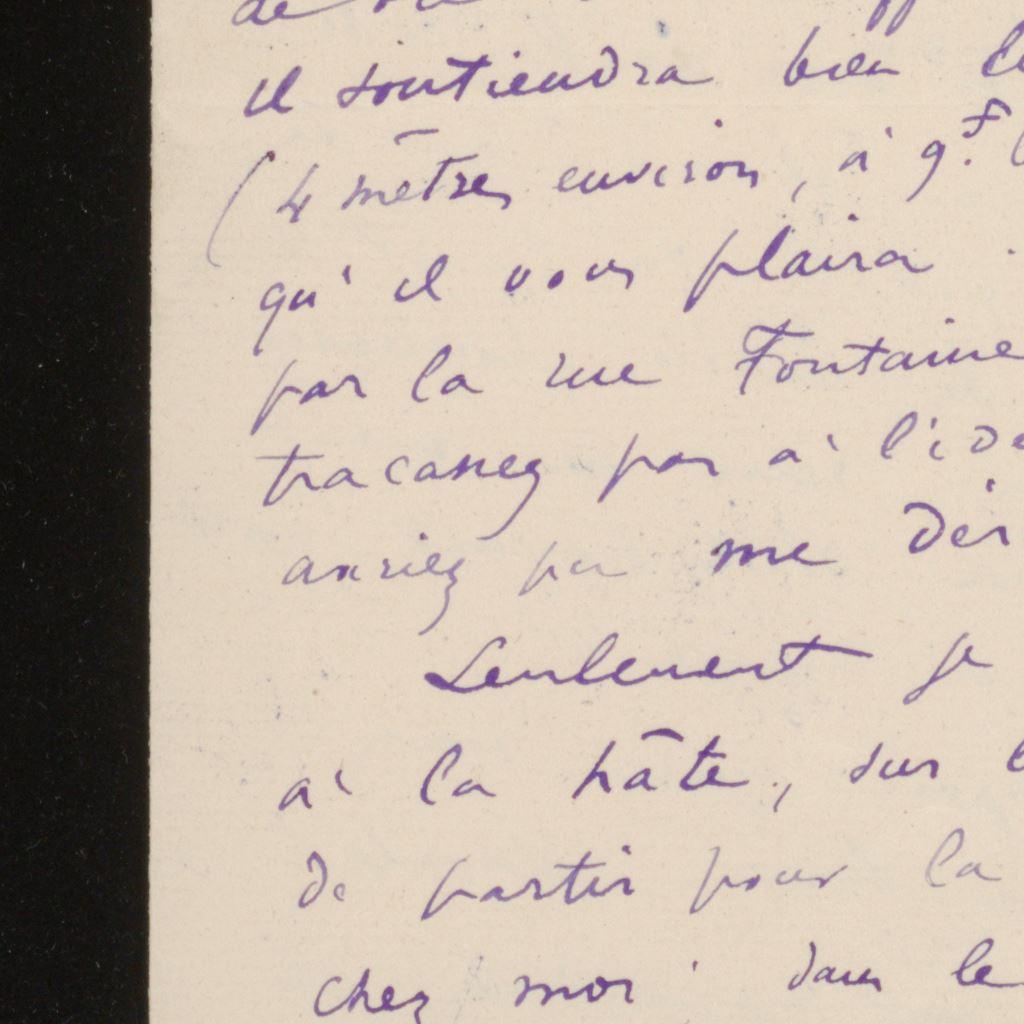 de
il soutiendra bien
(4 mètres environ, à
qu'il vous plaira.
par la rue Fontaine
tracassez pas à l'idé
auriez pu me dér
Seulement je
à la hâte, sur l
de partir pour la
chez moi dans le